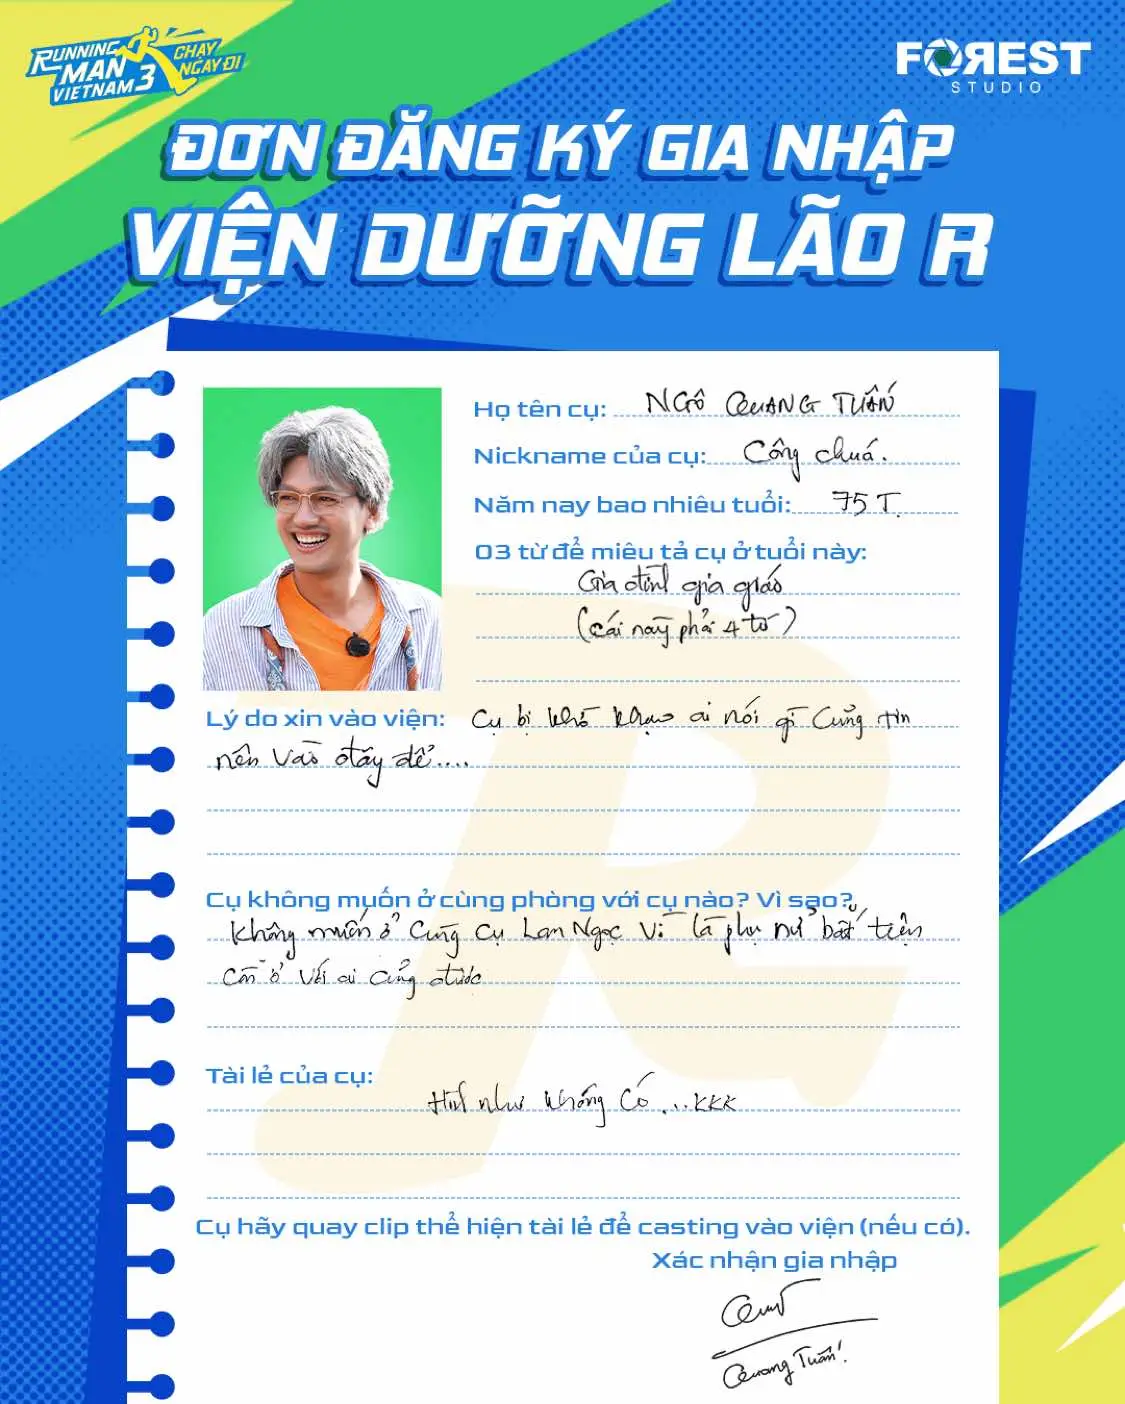 RUNNING
MAN
VIETNAM 3
CHẠY
NGAY ĐI
FOREST
STUDIO
ĐƠN ĐĂNG KÝ GIA NHẬP
VIỆN DƯỠNG LÃO R
Họ tên cụ: NGÔ QUANG TUẤN
Nickname của cụ: Công chuá.
Năm nay bao nhiêu tuổi: 75 T.
03 từ để miêu tả cụ ở tuổi này:
Gia đình gia giáo
(cái này phải 4 từ)
Lý do xin vào viện: Cụ bị khờ khạo ai nói gì cũng tin
nên vào đây để....
Cụ không muốn ở cùng phòng với cụ nào? Vì sao?
Không muốn ở cùng cụ Lan Ngọc vì là phụ nữ bất tiện
còn ở với ai cũng được
Tài lẻ của cụ:
Hình như không có...KKK
Cụ hãy quay clip thể hiện tài lẻ để casting vào viện (nếu có).
Xác nhận gia nhập
Quang Tuấn!